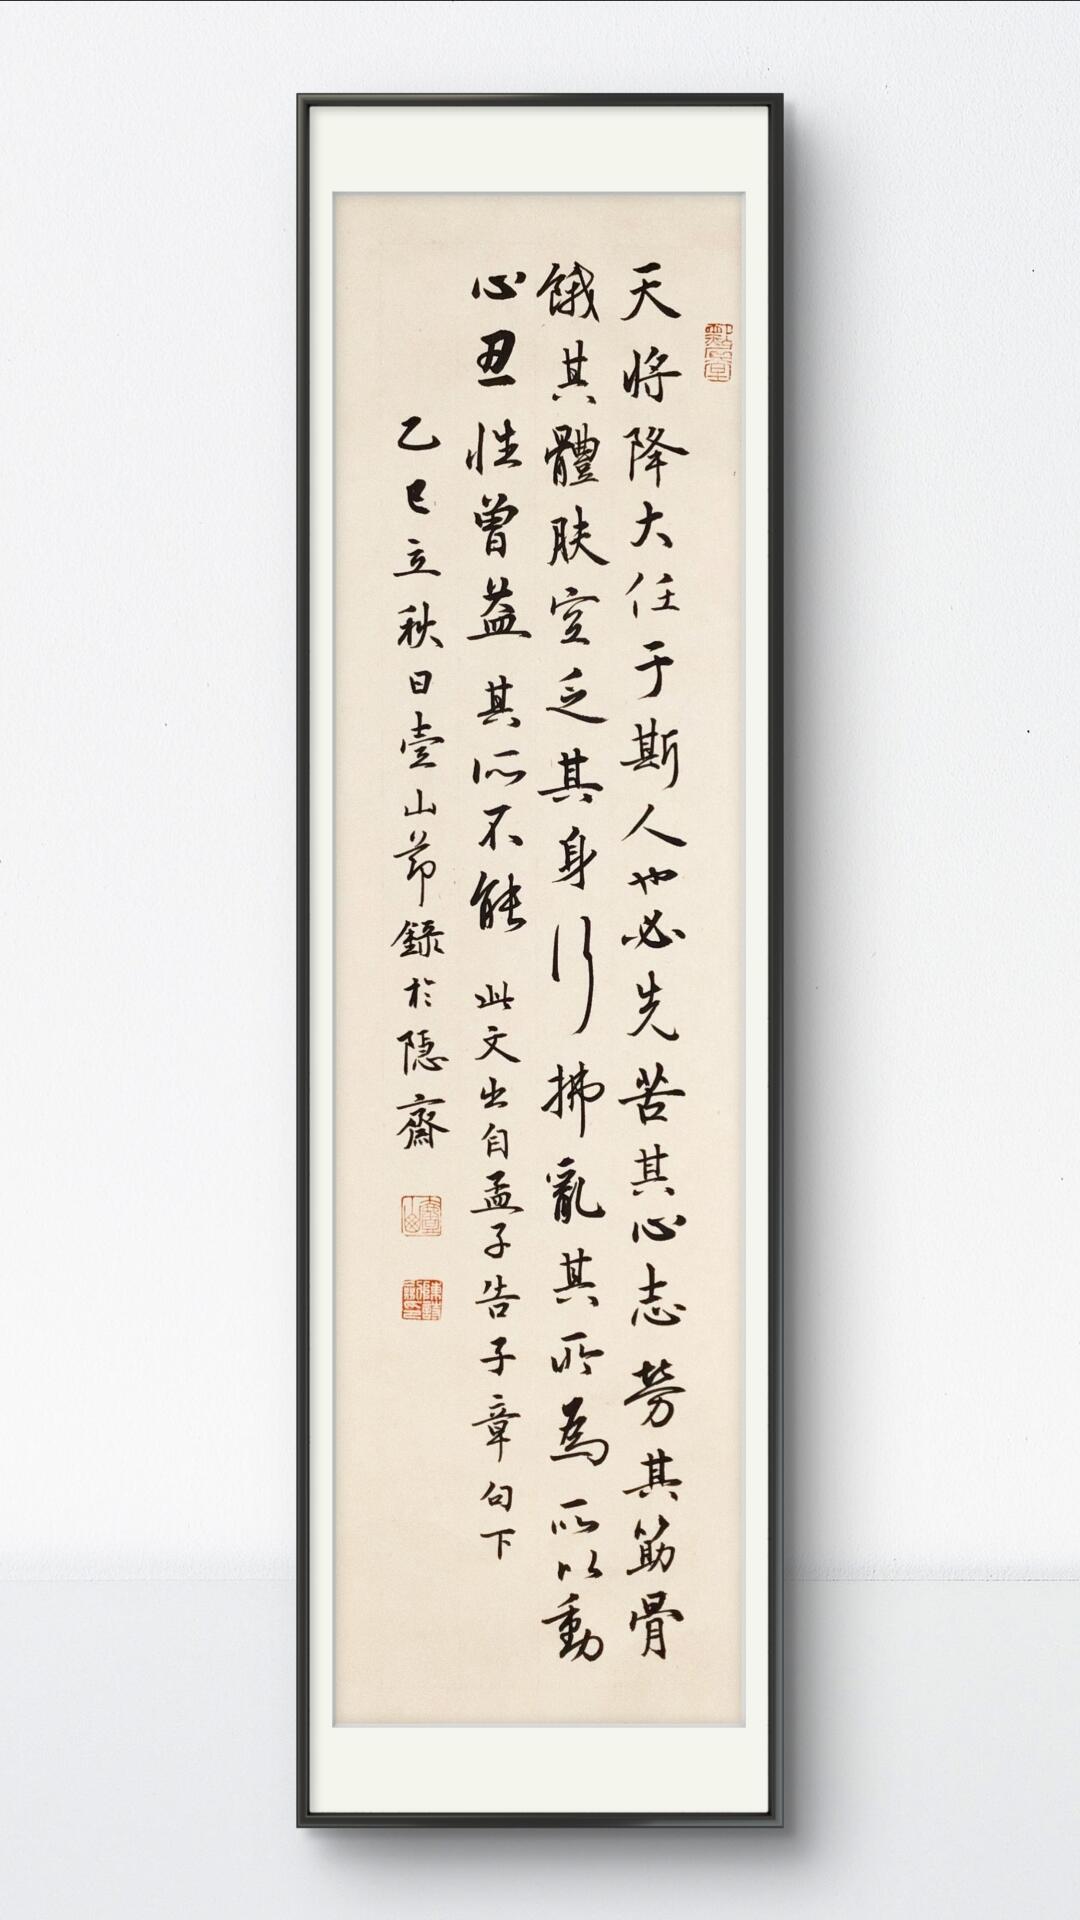 天將降大任于斯人也必先苦其心志勞其筋骨
餓其體膚空乏其身行拂亂其所為所以動
心忍性曾益其所不能 此文出自孟子告子章句下
乙巳立秋日壹山節錄於隱齋